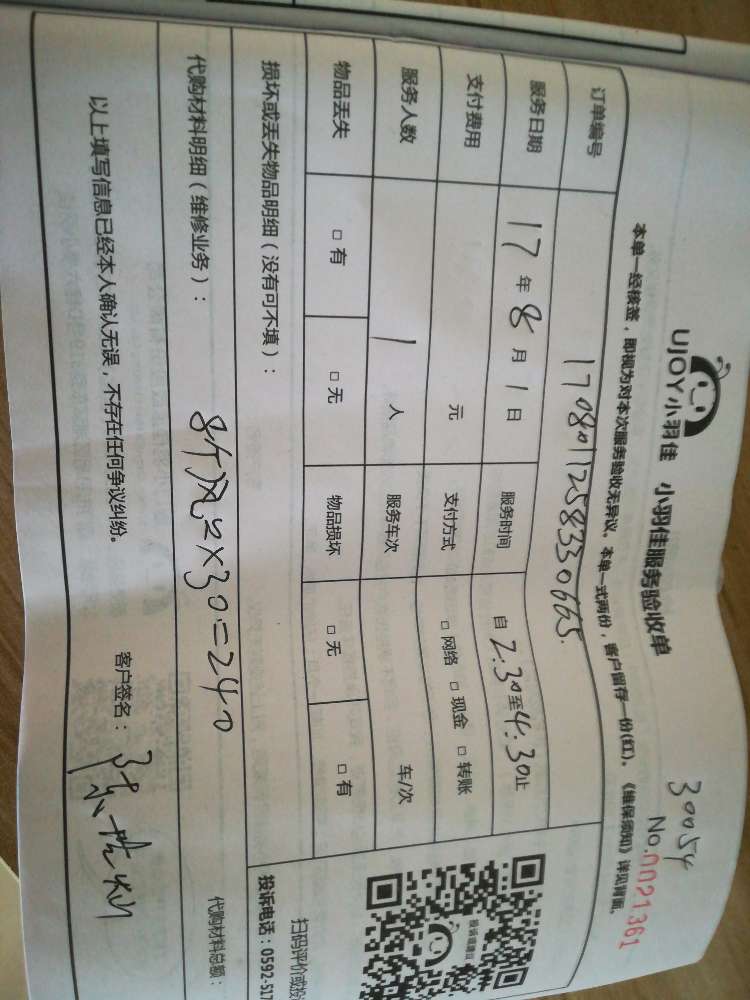 30054
UJOY小羽佳 小羽佳服务验收单
No.0021361
本单一经核签，即视为对本次服务验收无异议。本单一式两份，客户留存一份(红)。《维保须知》详见背面。
订单编号 170801125833066
服务日期 17年8月1日 服务时间 自2:30至4:30止
支付费用 元 支付方式 □网络 □现金 □转账
服务人数 1人 服务车次 车/次
物品丢失 □有 □无 物品损坏 □无 □有
损坏或丢失物品明细（没有可不填）：
投诉建议
扫码评价或投
投诉电话：0592-517
代购材料明细（维修业务）： 代购材料总额：
×30=240
以上填写信息已经本人确认无误，不存在任何争议纠纷。 客户签名：